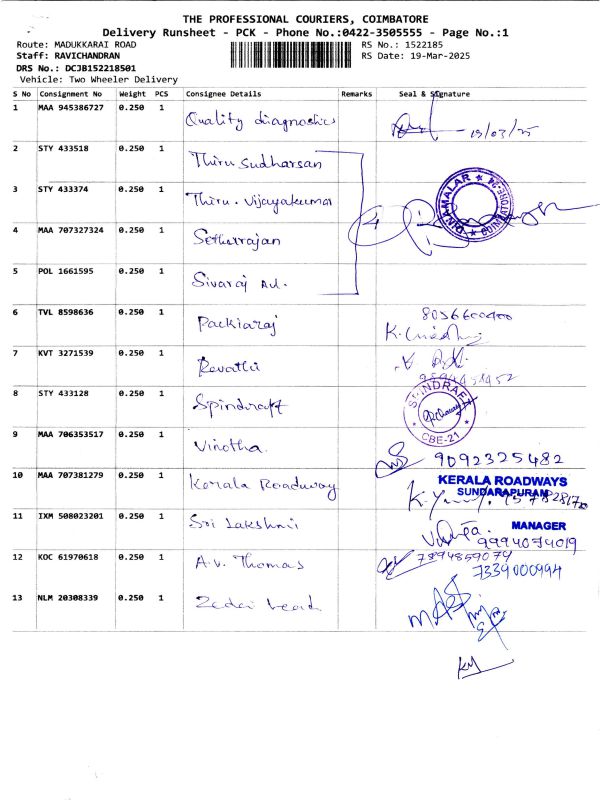 THE PROFESSIONAL COURIERS, COIMBATORE
Delivery Runsheet - PCK - Phone No.:0422-3505555 - Page No.:1
Route: MADUKKARAI ROAD
RS No.: 1522185
Staff: RAVICHANDRAN
RS Date: 19-Mar-2025
DRS No.: DCJB152218501
Vehicle: Two Wheeler Delivery
S No Consignment No Weight PCS Consignee Details Remarks Seal & Signature
1 MAA 945386727 0.250 1 Quality diagnostics 19/03/25
2 STY 433518 0.250 1 Thiru Sudharsan
3 STY 433374 0.250 1 Thiru. Vijayakumar
DINAMALAR
4 MAA 707327324 0.250 1 Sethurajan
4
5 POL 1661595 0.250 1 Sivaraj Ad.
6 TVL 8598636 0.250 1 Packiaraj
7 KVT 3271539 0.250 1 Revathi
8 STY 433128 0.250 1 Spindraft
SPINDRAFT
CBE-21
9 MAA 706353517 0.250 1 Vinotha. 9092325482
10 MAA 707381279 0.250 1 Kerala Roadway
KERALA ROADWAYS
SUNDARAPURAM
11 IXM 508023201 0.250 1 Sri Lakshmi
MANAGER
9994074019
12 KOC 61970618 0.250 1 A.V. Thomas 7894859074
7339000994
13 NLM 20308339 0.250 1